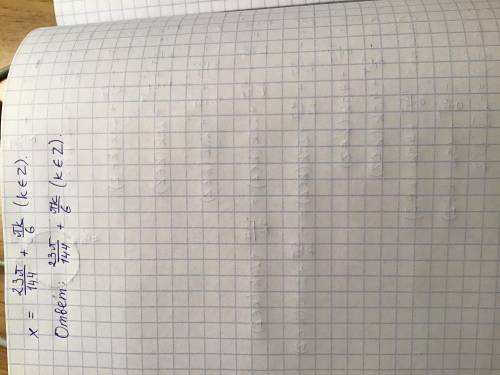 x = 23π/144 + πk/6 (k ∈ Z).
Ответ: 23π/144 + πk/6 (k ∈ Z).